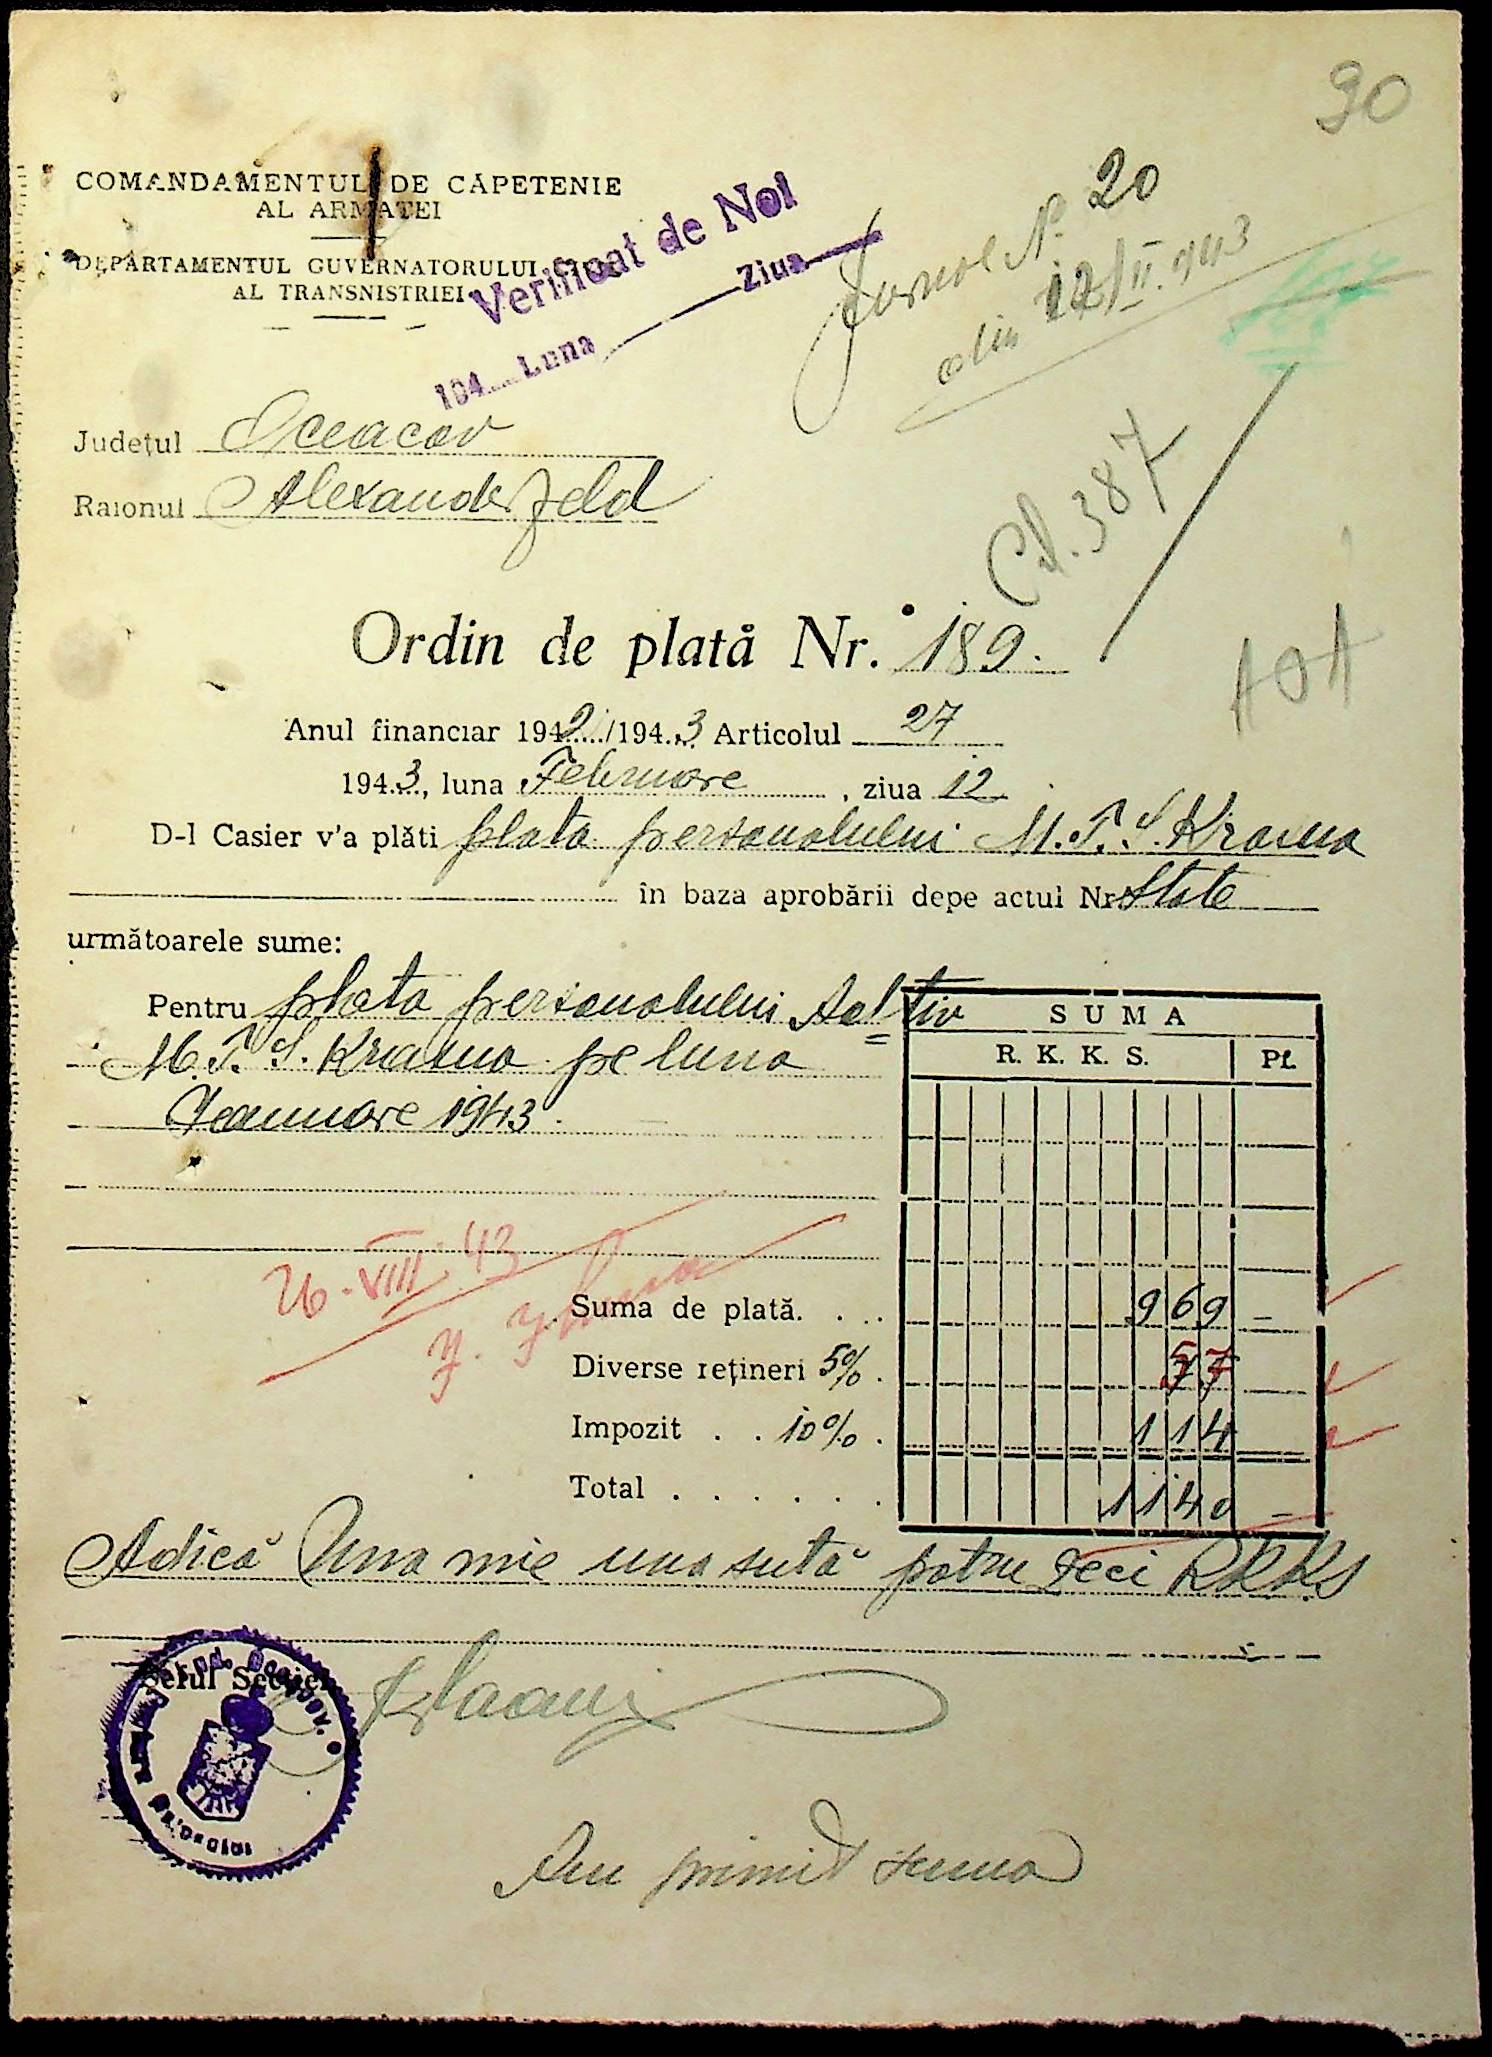 90
COMANDAMENTUL DE CAPETENIE
AL ARMATEI
DEPARTAMENTUL GUVERNATORULUI CIVIL
AL TRANSNISTRIEI
Verificat de Noi
194.... Luna Ziua
Jurnal No. 20
din 12/II.1943
Județul Oceacov
Raionul Alexanderfeld
Cd. 387
Ordin de plată Nr. 189.
101
Anul financiar 1942/1943 Articolul 27
1943, luna Februare, ziua 12
D-l Casier v'a plăti plata personalului M.T.S. Krasna
în baza aprobării depe actul Nr State
următoarele sume:
Pentru plata personalului Activ
M.T.S. Krasna pe luna
Jeanuare 1943.
SUMA
R. K. K. S. Pf.
26.VIII.43
Suma de plată. . . . 969 –
Diverse rețineri 5% . 57
Impozit . . 10% . 114
Total . . . . . . 1140 –
Adică Una mie una sută patru zeci RKKS
Șeful Secției
Am primit suma